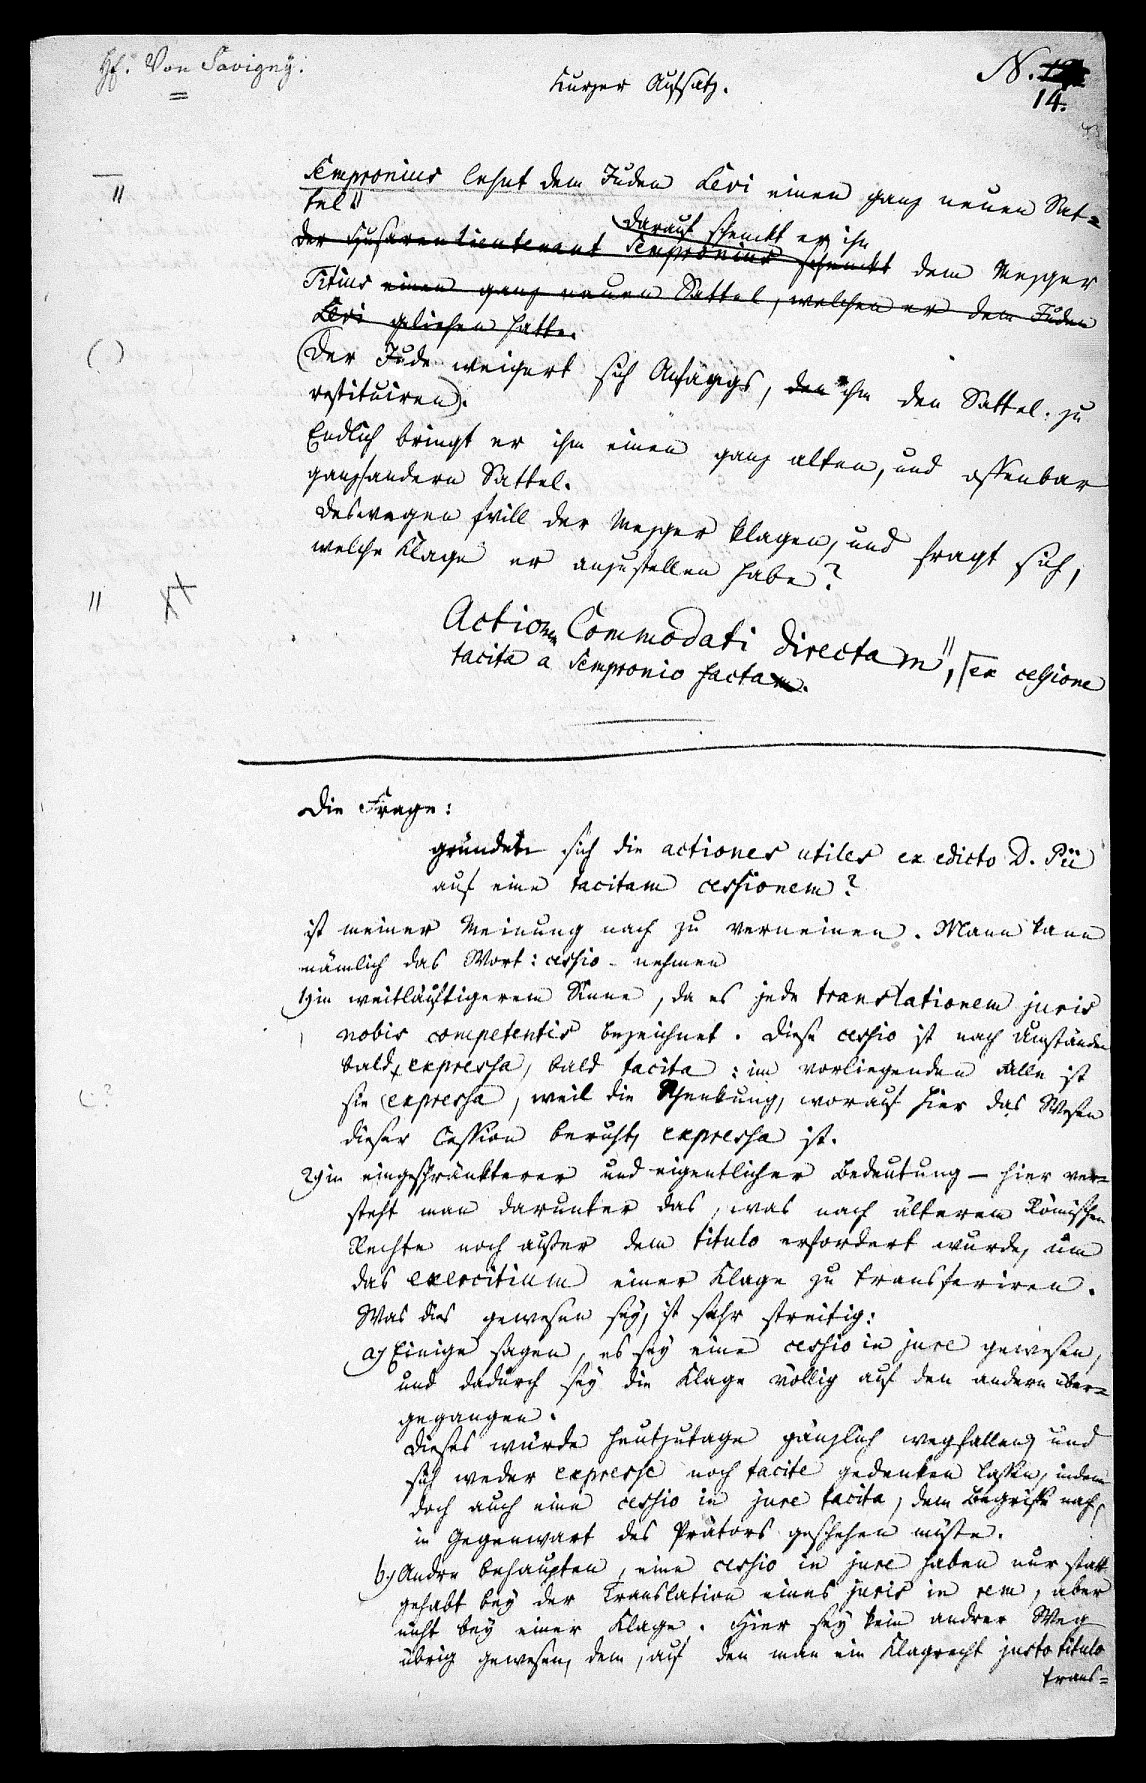 Hf. Von Savigny.
Kurzer Aufsatz.
N.
14.
Sempronius lehnt dem Juden Levi einen ganz neuen Sat-
tel
darauf schenkt er ihn
der Husaren Lieutenant Sempronius schenckt dem Mezger
Titius einen ganz neuen Sattel, welchen er dem Juden
Levi geliehen hatte.
(Der Jude weigert sich Anfangs, den ihm den Sattel zu
restituiren).
Endlich bringt er ihm einen ganz alten, und offenbar
ganz andern Sattel.
Deswegen will der Mezger klagen, und fragt sich,
welche Klage er anzustellen habe?
Actionem Commodati directam", ex cessione
tacita a Sempronio facta.
Die Frage:
gründen sich die actiones utiles ex edicto D. Pii
auf eine tacitam cessionem?
ist meiner Meinung nach zu verneinen. Mann kann
nämlich das Wort: cessio nehmen
1) in weitläuftigerem Sinne, da es jede translationem juris
nobis competentis bezeichnet. Diese cessio ist nach Umständen
bald expressa, bald tacita: im vorliegenden Falle ist
sie expressa, weil die Schenkung, worauf hier das Wesen
dieser Cession beruht, expressa ist.
2) in eingeschränkterer und eigentlicher Bedeutung – hier ver-
steht man darunter das, was nach älterem Römischen
Rechte noch außer dem titulo erfordert wurde, um
das exercitium einer Klage zu transferiren.
Was dies gewesen sey, ist sehr streitig:
a) Einige sagen, es sey eine cessio in jure gewesen,
und dadurch sey die Klage völlig auf den andern über-
gegangen.
Dieses würde heutzutage gänzlich wegfallen, und
sich weder expresse noch tacite gedenken lassen, indem
doch auch eine cessio in jure tacita, dem Begriffe nach,
in Gegenwart des Prätors geschehen müste.
b) Andre behaupten, eine cessio in jure haben nur statt
gehabt bey der Translation eines juris in rem, aber
nicht bey einer Klage. Hier sey kein andrer Weg
übrig gewesen, dem, auf den man ein Klagrecht justo titulo
trans-